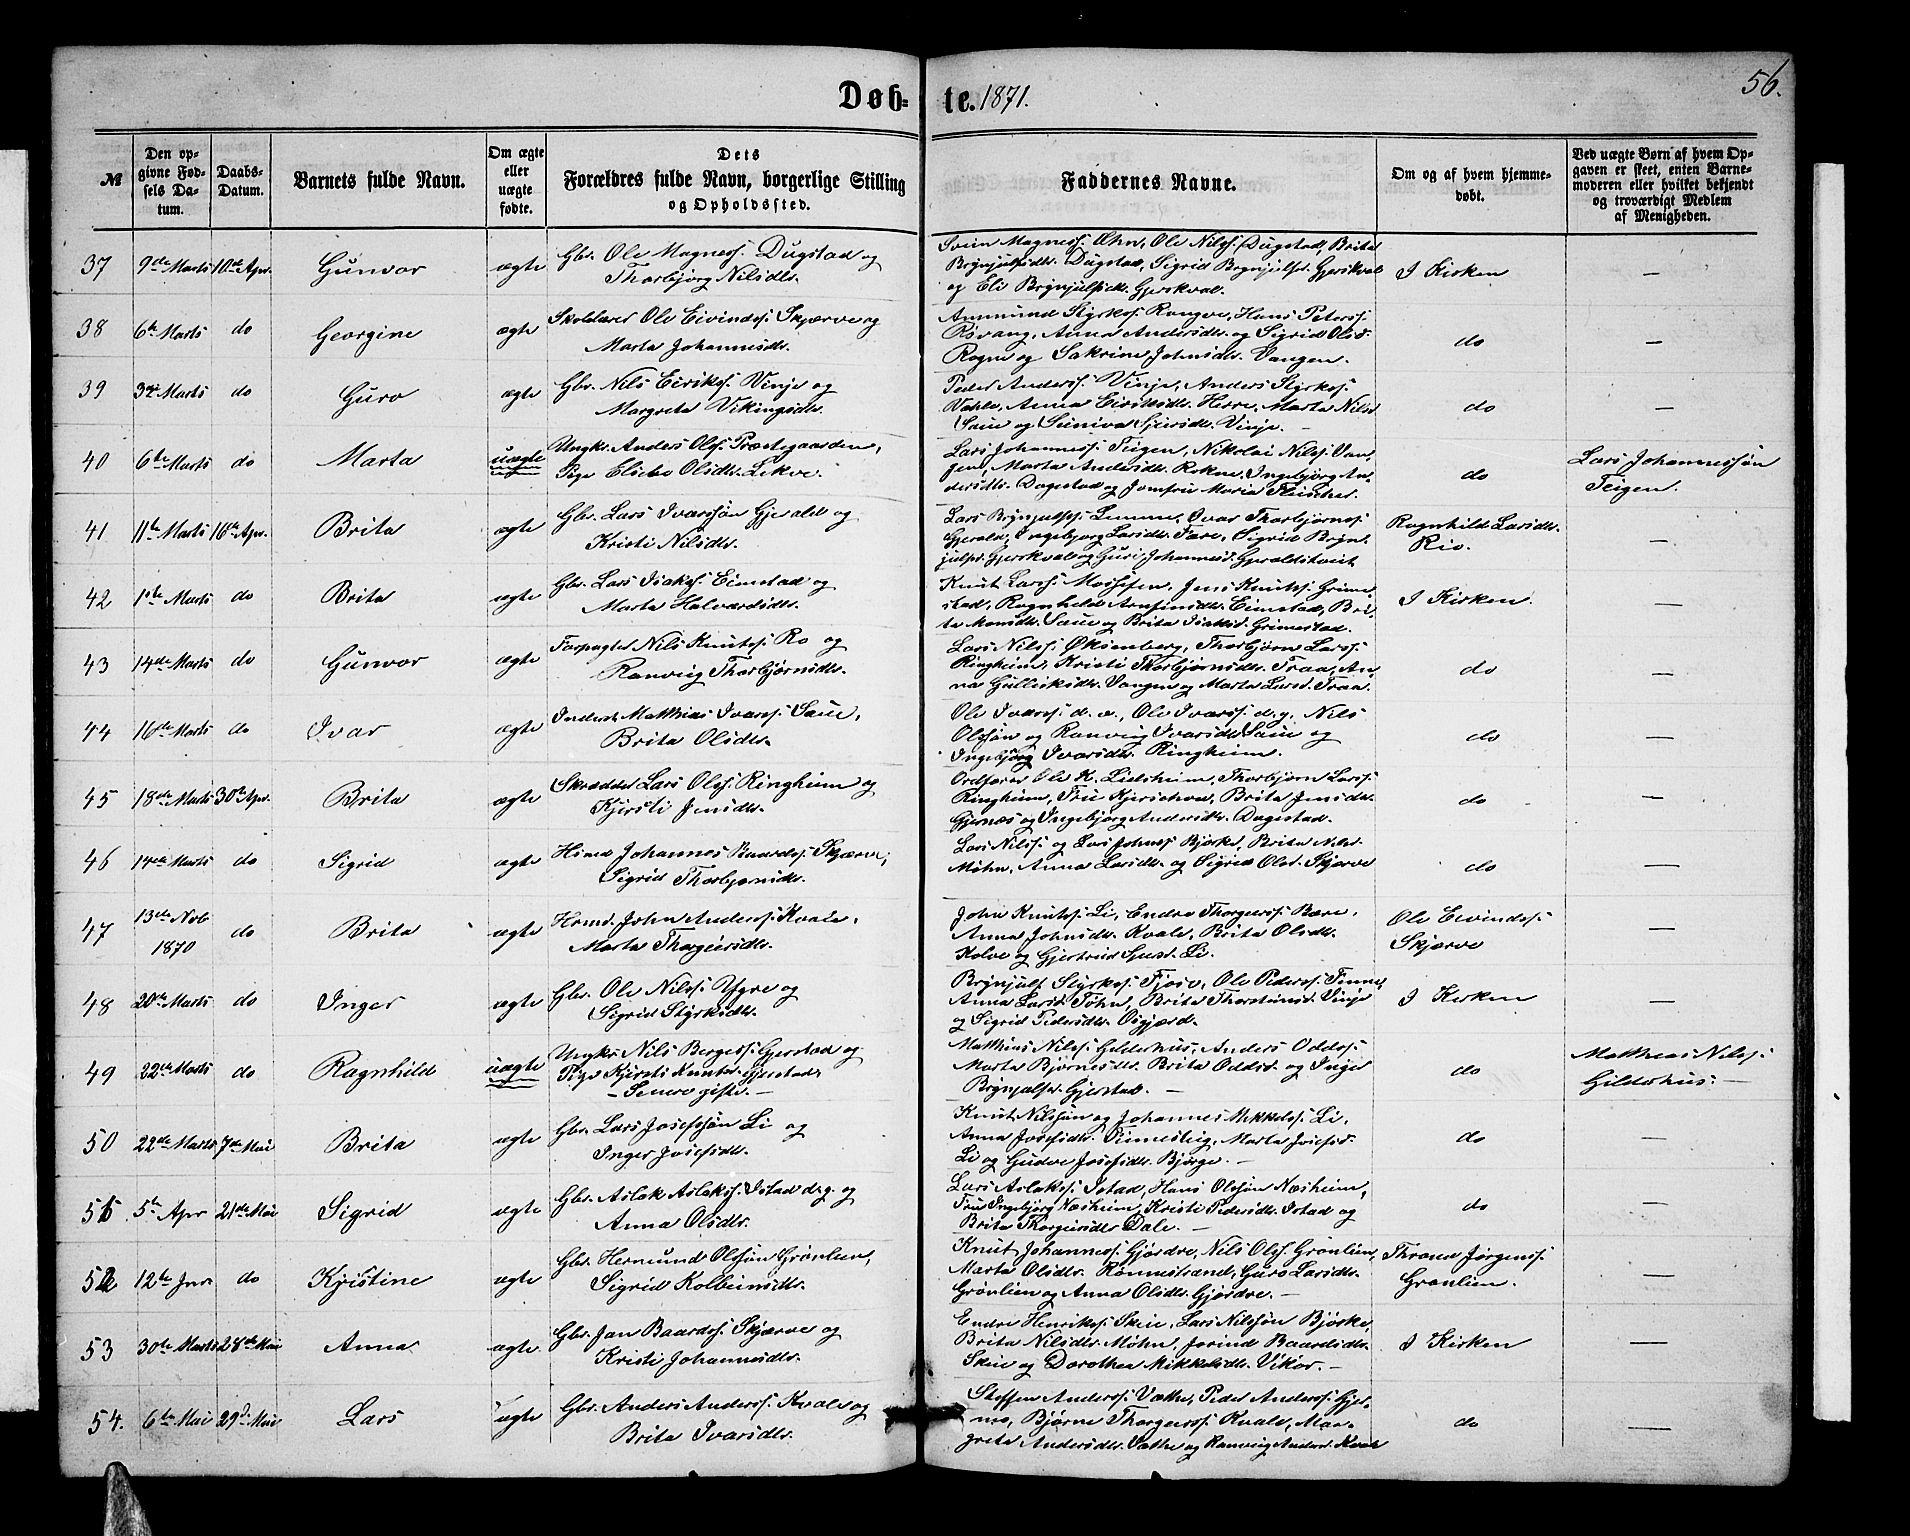 Døb-te. 1871.
56.
№
Den opgivne Fødsels Datum.
Daabs-Datum.
Barnets fulde Navn.
Om ægte eller uægte fødte.
Dets Forældres fulde Navn, borgerlige Stilling og Opholdssted.
Faddernes Navne.
Om og af hvem hjemmedøbt.
Ved uægte Børn af hvem Opgaven er skeet, enten Barnemoderen eller hvilket bekjendt og troværdigt Medlem af Menigheden.
37 9de Marts 10de Apr. Gunvor ægte Gbr. Ole Magness. Dugstad og
Thorbjørg Nilsdtr.
Svein Magness. Øhn, Ole Nilss. Dugstad, Brita
Brynjulfsdtr. Dugstad, Sigrid Brynjulfsd. Gjerskval
og Eli Brynjulfsdtr. Gjerskval.
I Kirken —
38 6te Marts do Georgine ægte Skolelærer Ole Eivindss. Skjærve og
Marta Johannesdtr.
Ammund Styrkss. Rongve, Hans Peterss.
Røvang, Anna Andersdtr. og Sigrid Olsd.
Rogne og Sakrine Johnsdtr. Vangen.
do —
39 3die Marts do Guro ægte Gbr. Nils Eirikss. Vinje og
Margreta Vikingsdtr.
Peder Anderss. Vinje, Anders Styrkss.
Væhle, Anna Eiriksdtr. Herre, Marta Nilsd.
Saue og Seniva Sjursdtr. Vinje. —
do —
40 6te Marts do Marta uægte Ungkr. Anders Olss. Præstegaarden,
Pige Elisbe Olsdtr. Lekve.
Lars Johanness. Teigen, Nikolai Nilss. Van-
gen, Marta Andersdtr. Rokne, Ingebjørg An-
dersdtr. Dagestad og Jomfru Maria Fleischer.
do
Lars Johannessøn
Teigen.
41 11te Marts 16de Apr. Brita ægte Gbr. Lars Ivarssøn Gjerald og
Kristi Nilsdtr.
Lars Brynjulfss. Lemme, Ivar Thorbjørnss.
Gjerald, Ingebjørg Larsdtr. Fære, Sigrid Bryn-
julfsd. Gjerskvale og Guri Johannesd. Gjeraldstveit
Ragnhild Larsdtr.
Rio.
—
42 1ste Marts do Brita ægte Gbr. Lars Isakss. Eimstad og
Marta Halvardsdtr.
Knut Larss. Mossefen, Jens Knutss. Grime-
stad, Ragnhild Arnfinsdtr. Eimstad, Bri-
ta Monsdtr. Saue og Brita Isaksd. Grimestad.
I Kirken. —
43 14de Marts do Gunvor ægte Forpagter Nils Knutss. Ro og
Ranveig Thorbjørnsdtr.
Lars Nilss. Øksenberg, Thorbjørn Larss.
Ringheim, Kristi Thorbjørnsdtr. Traa, An-
na Gulliksdtr. Vangen og Marta Larsd. Traa.
do —
44 16de Marts do Ivar ægte Inderst Matthias Ivarss. Saue,
Brita Olsdtr.
Ole Ivarss. d. e., Ole Ivarss. d. y., Nils
Olssøn og Ranveig Ivarsdtr. Saue og
Ingebjørg Ivarsdtr. Ringheim.
do —
45 18de Marts 30te Apr. Brita ægte Skrædder Lars Olss. Ringheim og
Kjersti Jensdtr.
Ordfører Ole K. Lidsheim, Thorbjørn Larss.
Ringheim, Fru Kjerschow, Brita Jensdtr.
Gjernæs og Ingebjørg Andersdtr. Dagestad.
do —
46 14de Marts do Sigrid ægte Hsmd Johannes Baardss. Skjærve,
Sigrid Thorbjørnsdtr.
Lars Nilss. og Lars Johnss. Bjørke, Brita Nilsd.
Møhn, Anna Larsdtr. og Sigrid Olsd. Skjærve
do —
47 13de Nob
1870
do Brita ægte Hsmd. John Anderss. Kvale,
Marta Thorgeirsdtr.
John Knutss. Li, Endre Thorgerss. Bære,
Anna Johnsdtr. Kvale, Brita Olsdtr.
Kolve og Gjertrud Sjursd. Li.
Ole Eivindss.
Skjærve
—
48 20de Marts do Inger ægte Gbr. Ole Nilss. Ygre og
Sigrid Styrksdtr.
Brynjulf Styrkss. Fjose, Ole Pederss. Finne,
Anna Larsd. Tøhn, Brita Thorstensd. Vinje
og Sigrid Pedersdtr. Osgjærd.
I Kirken —
49 22de Marts do Ragnhild uægte Ungkr. Nils Bergess. Gjerstad og
Pige Kjersti Knutsd. Gjerstad.
– Senere gifte. —
Matthias Nilss. Gilderhus, Anders Oddss.
Marta Bjørnesdtr. Brita Oddsd. og Inger
Brynjulfsd. Gjerstad. —
do
Matthias Nilss.
Gilderhus. —
50 22de Marts 7de Mai Brita ægte Gbr. Lars Josefssøn Li og
Inger Josefsdtr.
Knut Nilssøn og Johannes Mikkelss. Li,
Anna Josefsdtr. Rinnesteig, Marta Josefsd.
Li og Gudve Josefsdtr. Bjørge. —
do —
51 5te Apr 21de Mai Sigrid ægte Gbr. Aslak Aslakss. Istad d. y. og
Anna Olsdtr.
Lars Aslakss. Istad, Hans Olssøn Næsheim,
Fru Ingebjørg Næsheim, Kristi Pedersdtr. Istad og
Brita Thorgeirsdtr. Dale. —
do —
52 12te Jnr do Kristine ægte Gbr. Hermund Olssøn Grønlien,
Sigrid Kolbeinsdtr.
Knut Johanness. Gjørdre, Nils Olss. Grønlien,
Marta Olsdtr. Rønnestrand, Guro Larsdtr.
Grønlien og Anna Olsdtr. Gjørdre. —
Thrond Jørgenss.
Grønlien.
—
53 30te Marts 28de Mai Anna ægte Gbr. Jan Baardss. Skjærve og
Kristi Johannesdtr.
Endre Henrikss. Skeie, Lars Nilssøn Bjørke,
Brita Nilsdtr. Møhn, Jorind Baardsdtr.
Skeie og Dorothea Mikkelsdtr. Vikør. —
I Kirken —
54. 6te Mai 29de Mai Lars ægte Gbr. Anders Anderss. Kvale og
Brita Ivarsdtr.
Steffen Anderss. Væthe, Peder Anderss. Gjel-
me, Bjørne Thorgerss. Kvale, Mar-
greta Andersdtr. Væthe og Ranveig Andersd. Kvale
do —